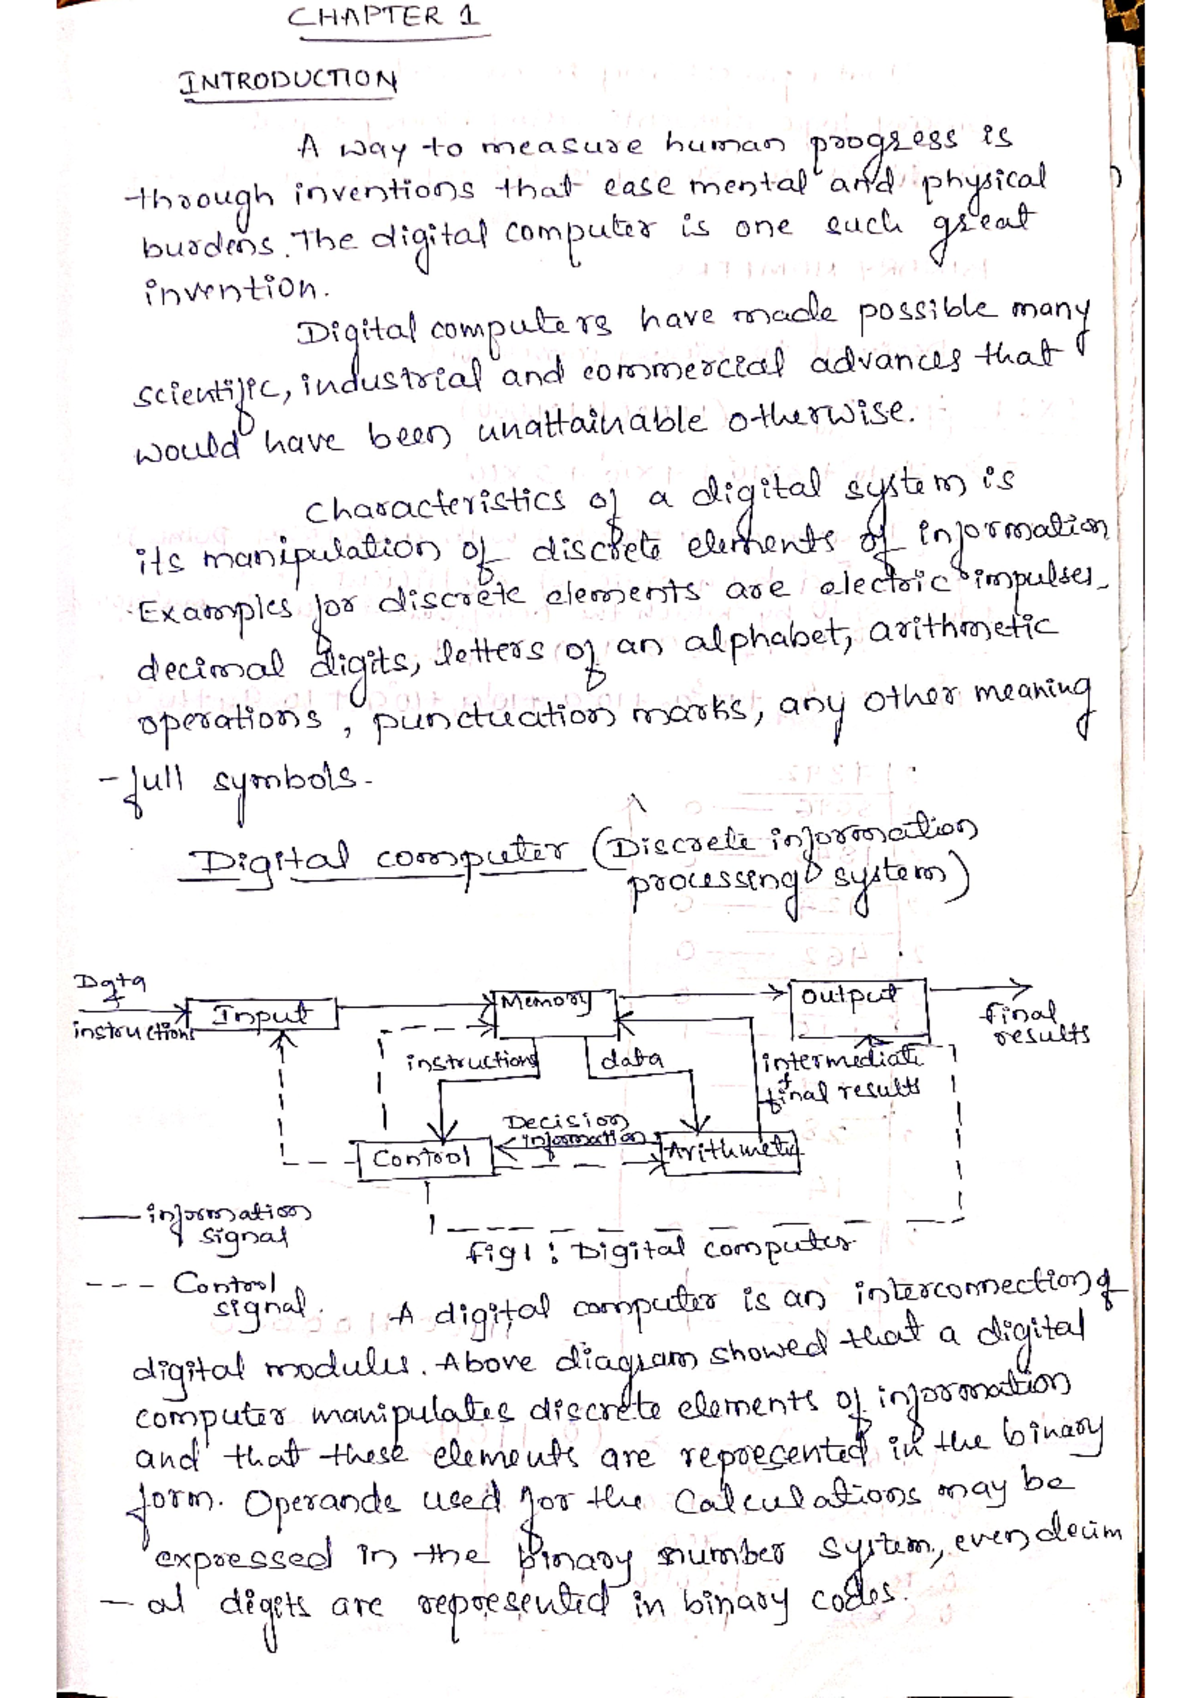 CHAPTER 1
INTRODUCTION
A way to measure human progress is
through inventions that ease mental and physical
burdens. The digital computer is one such great
invention.
Digital computers have made possible many
scientific, industrial and commercial advances that
would have been unattainable otherwise.
Characteristics of a digital system is
its manipulation of discrete elements of information
Examples for discrete elements are electric impulses.
decimal digits, letters of an alphabet, arithmetic
operations, punctuation marks, any other meaning
-full symbols.
Digital computer (Discrete information
processing system)
Data
&
instructions
Input
Memory
Output
final
results
instructions
data
intermediate
+
final results
Decision
information
Control
Arithmetic
— information
signal
--- Control
signal.
fig1 : Digital computer
A digital computer is an interconnection of
digital modules. Above diagram showed that a digital
computer manipulates discrete elements of information
and that these elements are represented in the binary
form. Operands used for the calculations may be
expressed in the binary number system, even decim
- al digits are represented in binary codes.